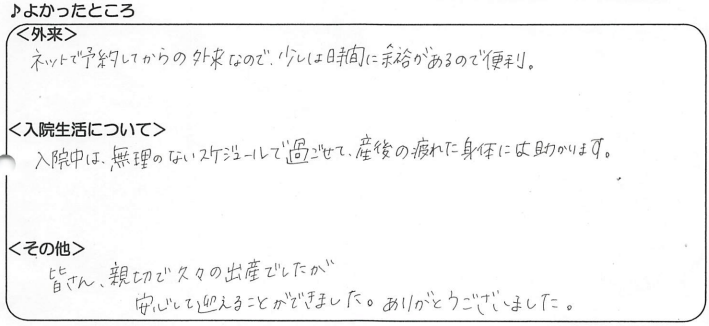 ♪よかったところ
＜外来＞
ネットで予約してからの外来なので、少しは時間に余裕があるので便利。
＜入院生活について＞
入院中は、無理のないスケジュールで過ごせて、産後の疲れた身体には助かります。
＜その他＞
皆さん、親切で久々の出産でしたが
安心して迎えることができました。ありがとうございました。